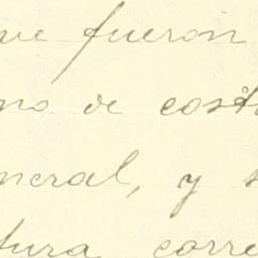 ue fueron
no de cost
neral, y s
tura corre